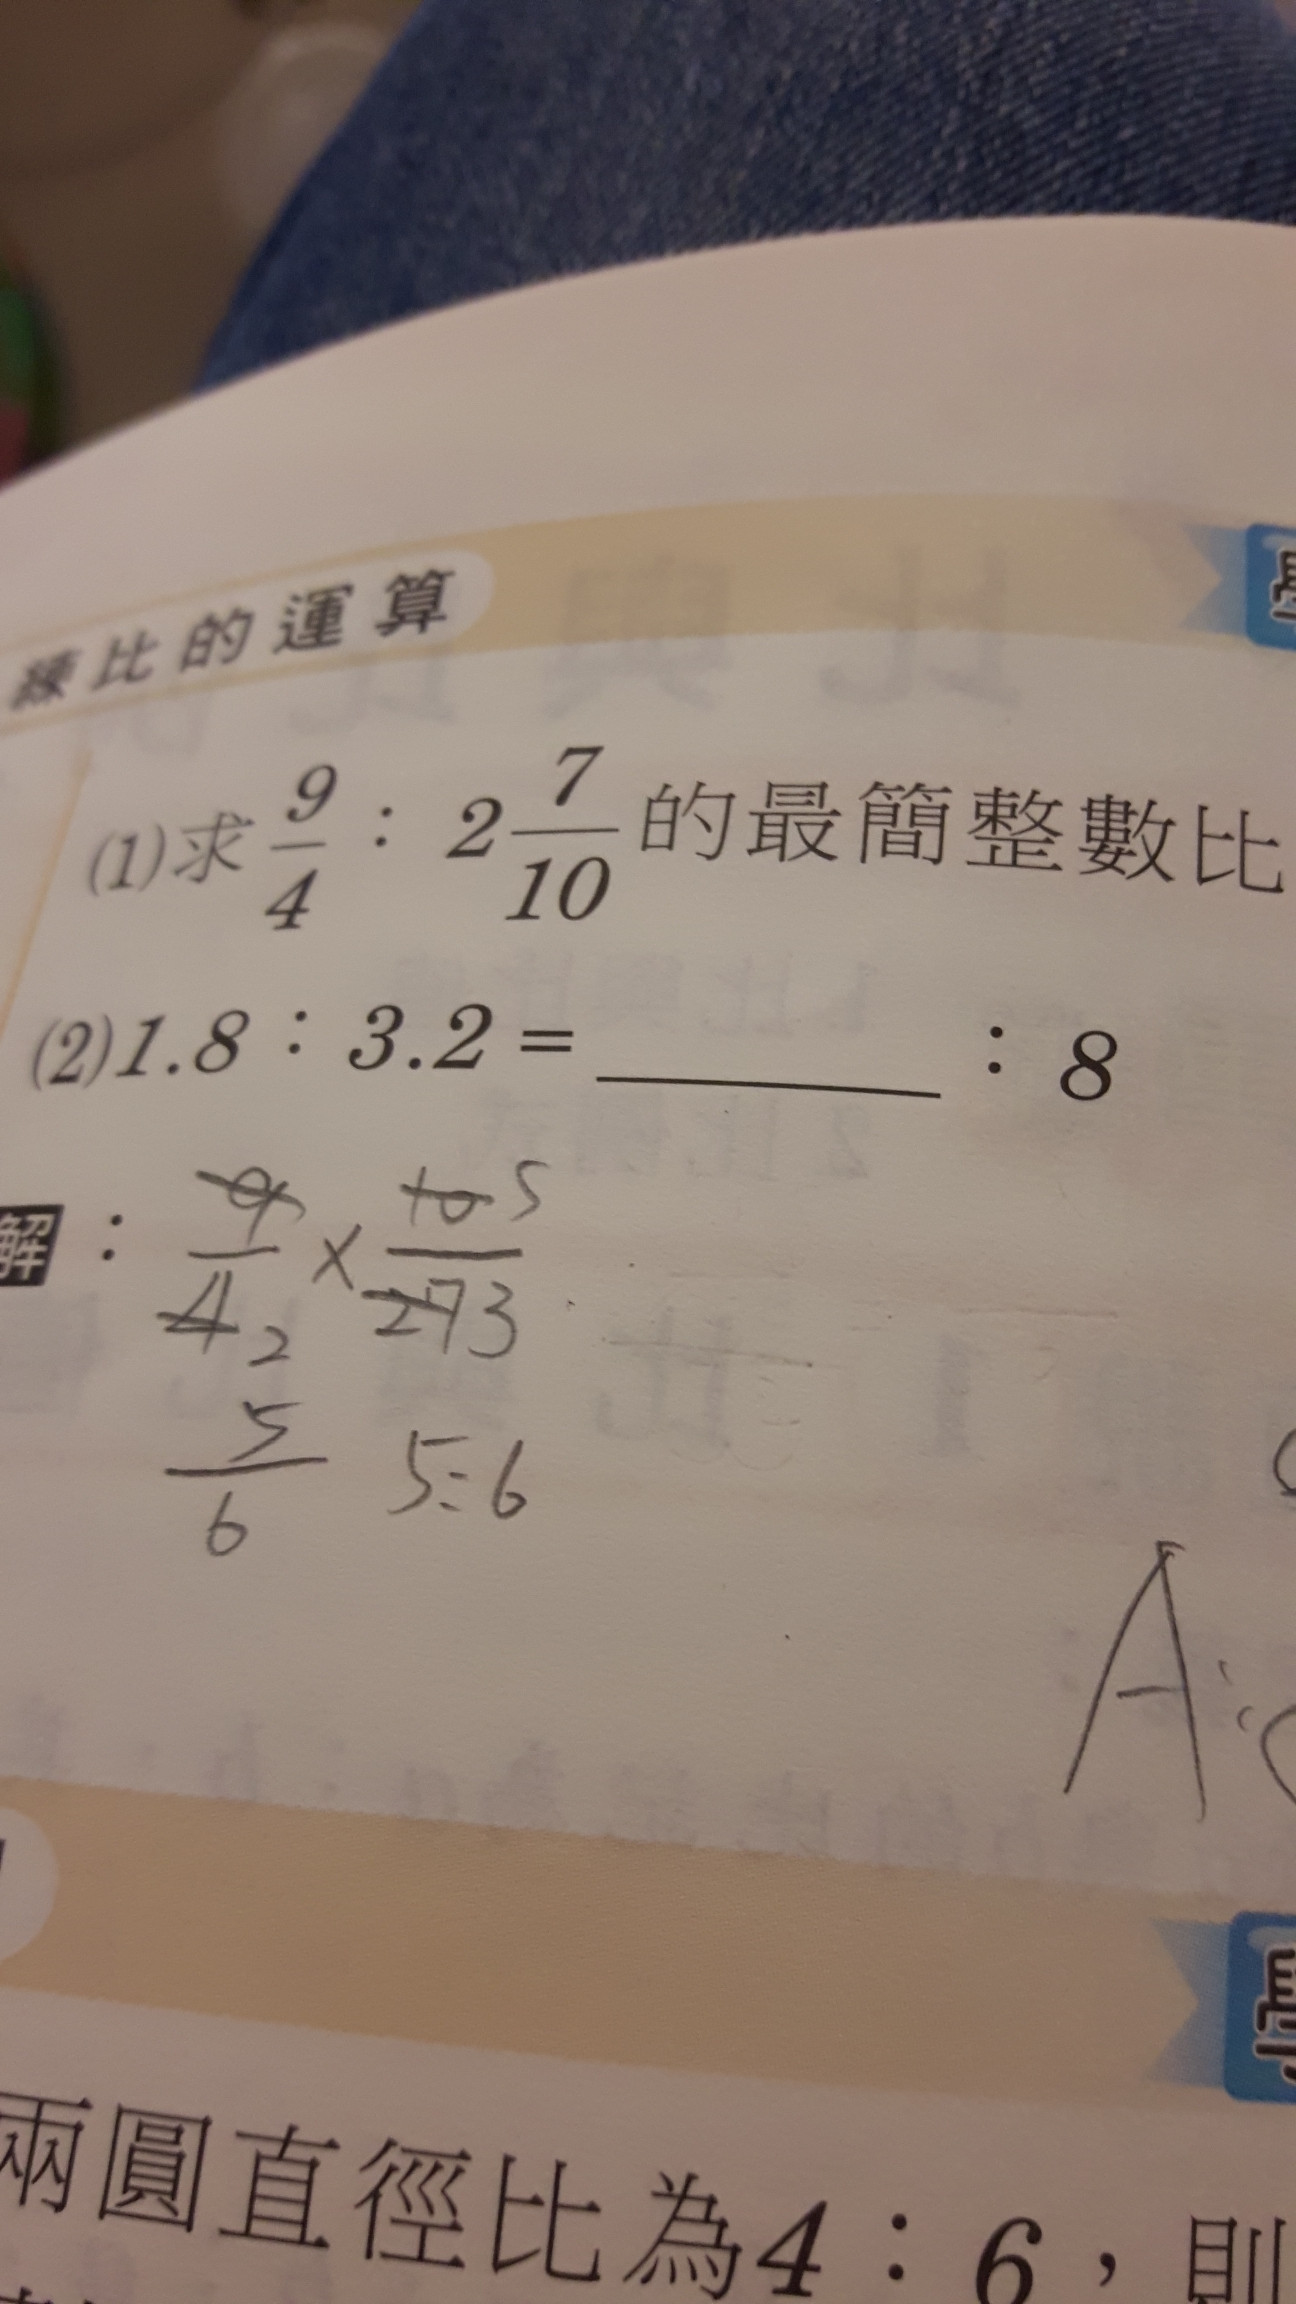 練比的運算
(1)求 9/4 : 2 7/10 的最簡整數比
(2)1.8 : 3.2 = ______ : 8
解 : 9/4 2 × 10 5/27 3
5/6 5:6
A:
兩圓直徑比為4 : 6，則